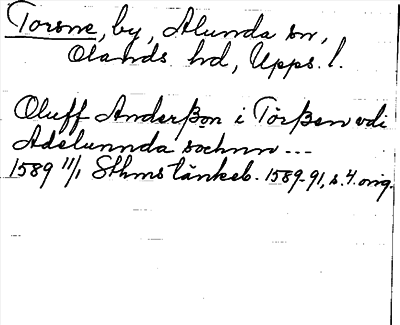 Torsne, by, Alunda sn,
Olands hd, Upps. l.
Oluff Anderßon i Törßen vdi
Adelunnda sochnn ---
1589 11/1 Sthms tänkeb. 1589-91, s. 4. orig.